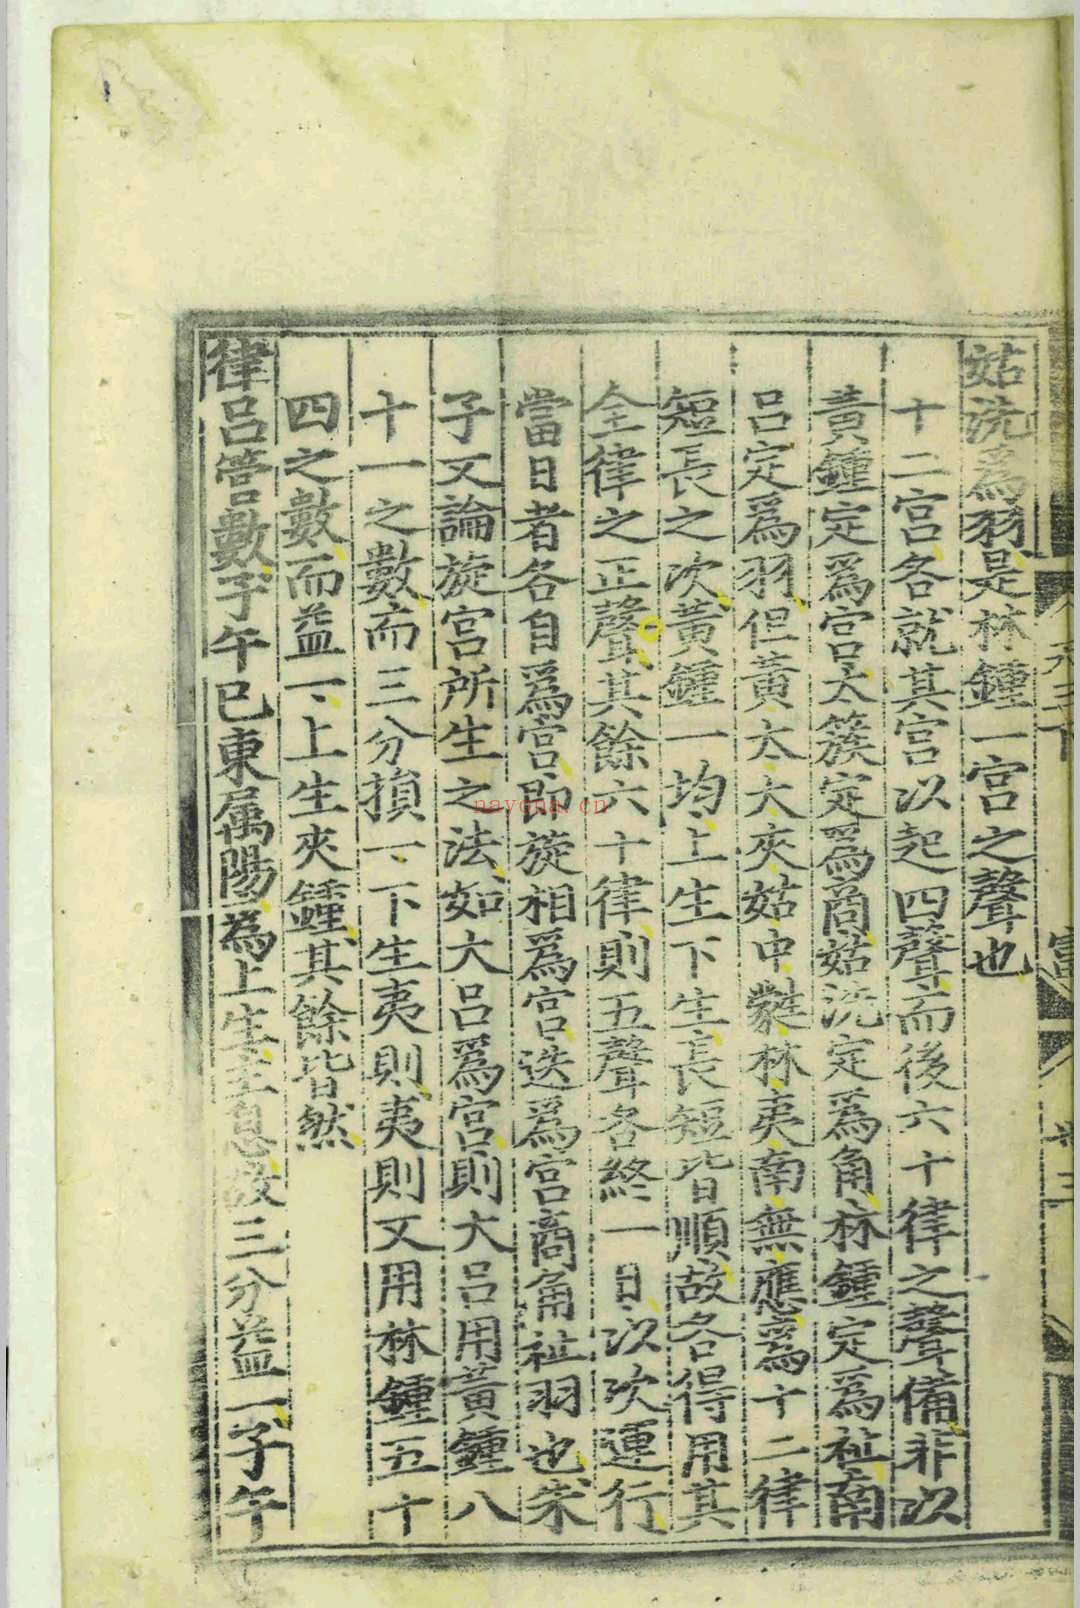 姑洗爲羽是林鍾一宮之聲也
十二宮各就其宮以起四聲而後六十律之聲備非以
黃鍾定爲宮太簇定爲商姑洗定爲角林鍾定爲祉南
呂定爲羽但黃太大夾姑中蕤林夷南無應爲十二律
短長之次黃鍾一均上生下生長短皆順故各得用其
全律之正聲其餘六十律則五聲各終一日以次運行
當日者各自爲宮即旋相爲宮迭爲宮商角祉羽也朱
子又論旋宮所生之法如大呂爲宮則大呂用黃鍾八
十一之數而三分損一下生夷則夷則又用林鍾五十
四之數而益一上生夾鍾其餘皆然
律呂管數子午巳東属陽爲上生主息故三分益一子午
nayona.cn